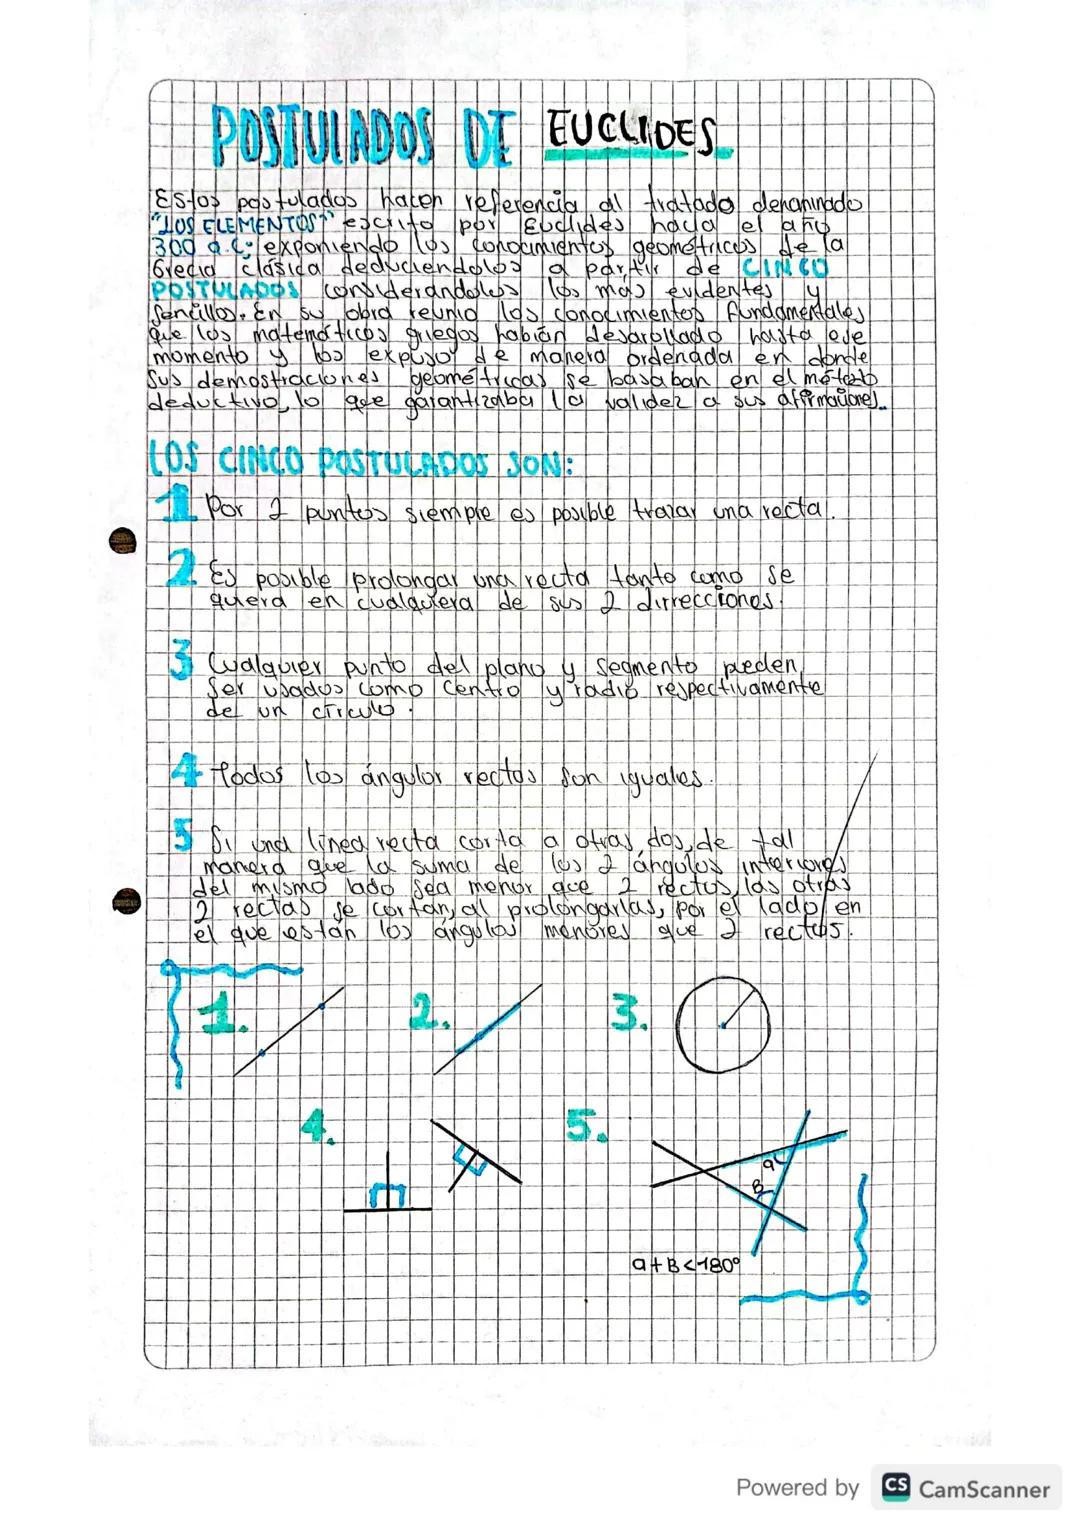 POSTULADOS DE EUCLIDES
Estos postulados hacen referencia al tratado denominado
"LOS ELEMENTOS" escrito por Euclides hacia el año
300 a.C; exponiendo los conocimientos geométricos de la
Grecia clásica deduciendolos a partir de CINCO
POSTULADOS considerandolos los más evidentes y
sencillos. En su obra reunio los conocimientos fundamentales
que los matemáticos griegos habián desarollado hasta ese
momento y los expuso de manera ordenada en donde
sus demostraciones geométricas se basaban en el método
deductivo, lo que garantizaba la validez a sus afirmaciones.
LOS CINCO POSTULADOS SON:
1 Por 2 puntos siempre es posible trazar una recta.
2 Es posible prolongar una recta tanto como se
quiera en cualquiera de sus 2 dirrecciones.
3 Cualquier punto del plano y segmento pueden
ser usados como centro y radio respectivamente
de un círculo.
4 Todos los ángulor rectos son iguales.
5 Si una línea recta corta a otras dos, de tal
manera que la suma de los 2 ángulos interiores
del mismo lado sea menor que 2 rectos, las otras
2 rectas se cortan, al prolongarlas, por el lado en
el que están los ángulos menores que 2 rectos.
1. 2. 3.
4. 5.
a
B
a+B<180°
Powered by CS CamScanner